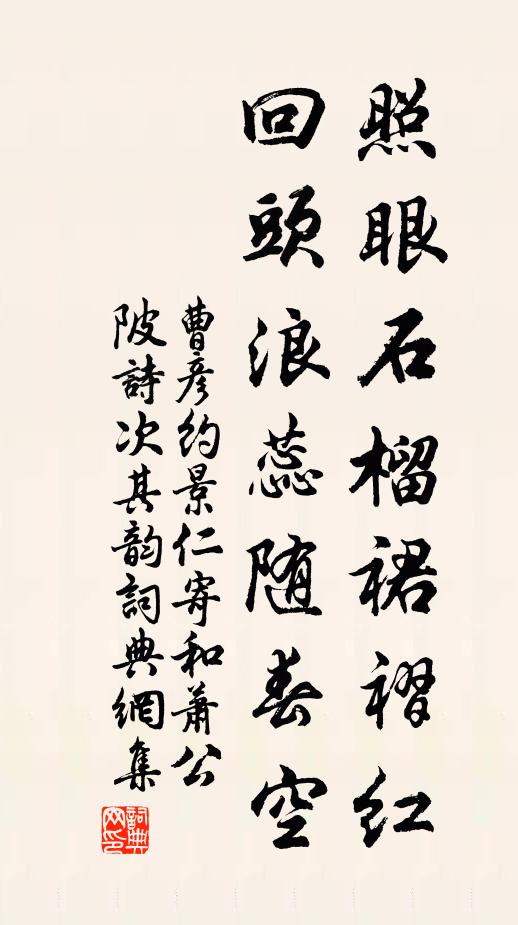 照眼石榴裙褶红
回頭浪蕊随春空
曹彦约景仁寄和萧公
陂詩次其韵詞典網集
詞典网印